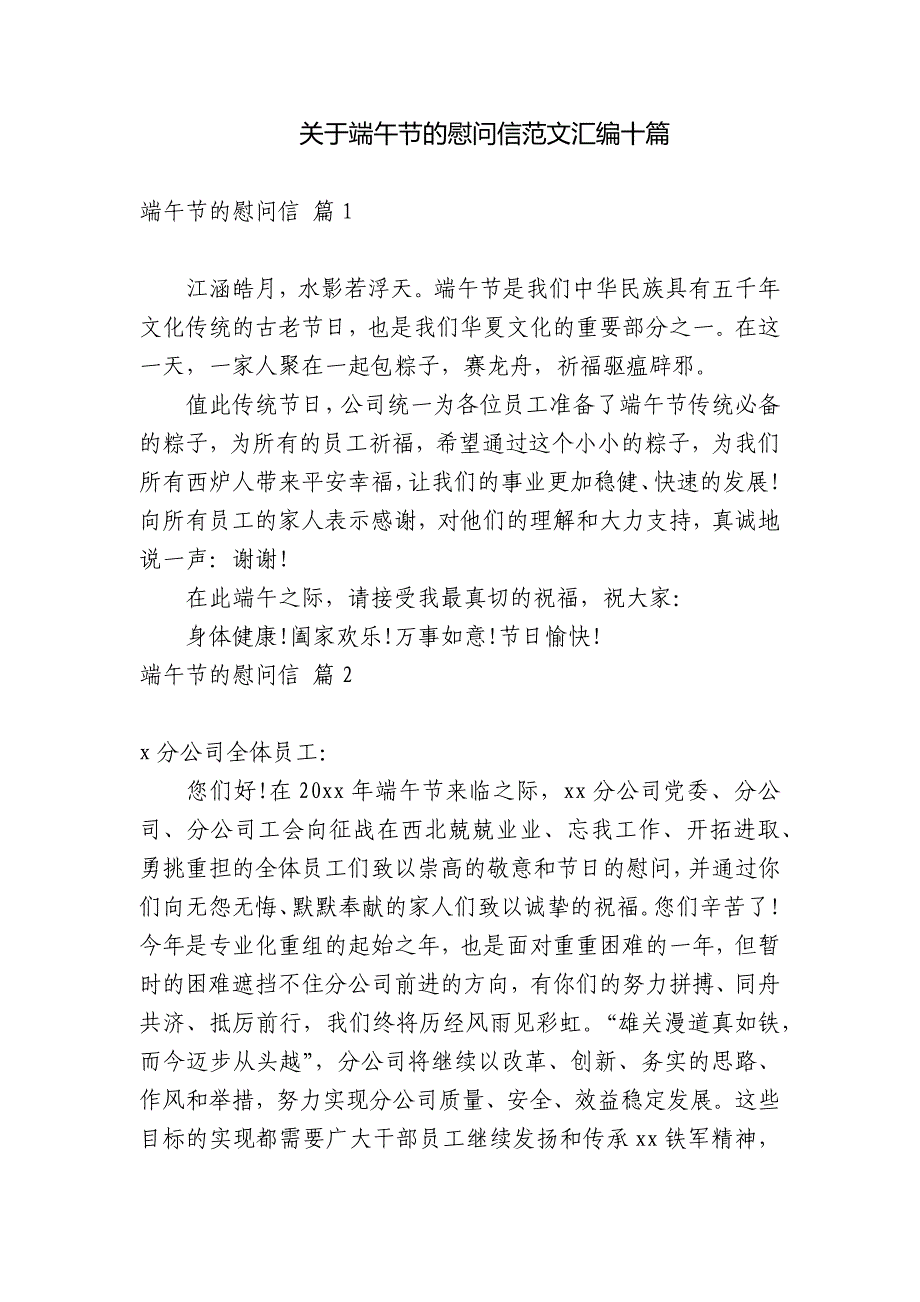 关于端午节的慰问信范文汇编十篇
端午节的慰问信 篇1
江涵皓月，水影若浮天。端午节是我们中华民族具有五千年
文化传统的古老节日，也是我们华夏文化的重要部分之一。在这
一天，一家人聚在一起包粽子，赛龙舟，祈福驱瘟辟邪。
值此传统节日，公司统一为各位员工准备了端午节传统必备
的粽子，为所有的员工祈福，希望通过这个小小的粽子，为我们
所有西炉人带来平安幸福，让我们的事业更加稳健、快速的发展!
向所有员工的家人表示感谢，对他们的理解和大力支持，真诚地
说一声：谢谢!
在此端午之际，请接受我最真切的祝福，祝大家：
身体健康!阖家欢乐!万事如意!节日愉快!
端午节的慰问信 篇2
x分公司全体员工：
您们好!在20xx年端午节来临之际，xx分公司党委、分公
司、分公司工会向征战在西北兢兢业业、忘我工作、开拓进取、
勇挑重担的全体员工们致以崇高的敬意和节日的慰问，并通过你
们向无怨无悔、默默奉献的家人们致以诚挚的祝福。您们辛苦了!
今年是专业化重组的起始之年，也是面对重重困难的一年，但暂
时的困难遮挡不住分公司前进的方向，有你们的努力拼搏、同舟
共济、抵厉前行，我们终将历经风雨见彩虹。“雄关漫道真如铁，
而今迈步从头越”，分公司将继续以改革、创新、务实的思路、
作风和举措，努力实现分公司质量、安全、效益稳定发展。这些
目标的实现都需要广大干部员工继续发扬和传承xx铁军精神，